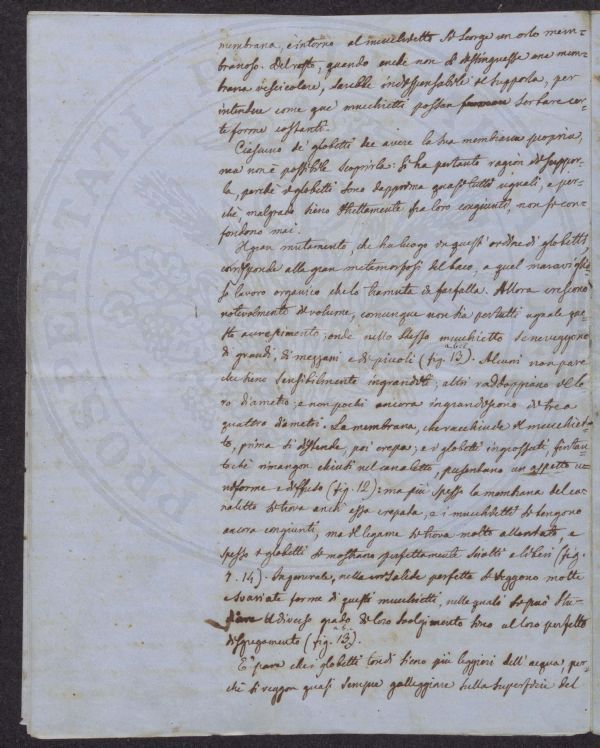 membrana, e intorno al mucchietto si scorge un orlo mem-
branoso. Del resto, quando anche non si distinguesse una mem-
brana vescicolare, sarebbe indispensabile il supporla, per
intendere come que' mucchietti possan serbare cer-
te forme costanti.
Ciascuno de' globetti dee avere la sua membrana propria,
ma non è possibile scoprirla. Si ha pertanto ragion di suppor-
la, perchè i globetti sono dapprima quasi tutti uguali, e per-
chè, malgrado sieno strettamente fra loro congiunti, non si con-
fondono mai.
Il gran mutamento, che ha luogo in questi ordine di globetti,
corrisponde alla gran metamorfosi del baco, a quel maraviglio-
so lavoro organico che lo tramuta in farfalla. Allora crescono
notevolmente di volume, comunque non sia per tutti uguale que-
sto accrescimento; onde nello stesso mucchietto se ne veggono
di grandi, di mezzani e di piccoli (fig. 13 a.b.c.). Alcuni non pare
che sieno sensibilmente ingranditi; altri raddoppiano il lo-
ro diametro; e non pochi ancora ingrandiscono di tre a
quattro diametri. La membrana, che racchiude il mucchiet-
to, prima si distende, poi crepa; e i globetti ingrossati, fintan-
tochè rimangon chiusi nel canaletto, presentano un aspetto u-
niforme e diffuso (fig. 12): ma più spesso la membrana del ca-
naletto si trova anch' essa crepata, e i mucchietti si tengono
ancora congiunti, ma il legame si trova molto allentato, e
spesso i globetti si mostrano perfettamente sciolti e liberi (fig.
7. 14). In generale, nella crisalide perfetta si veggono molte
e svariate forme di questi mucchietti, nelle quali si può stu-
diare il diverso grado di loro svolgimento sino al loro perfetto
disgregamento (fig. 13 a.b.).
E' pare che i globetti tondi sieno più leggieri dell' acqua, per-
chè si veggon quasi sempre galleggiare sulla superficie del
PROSPERITATI